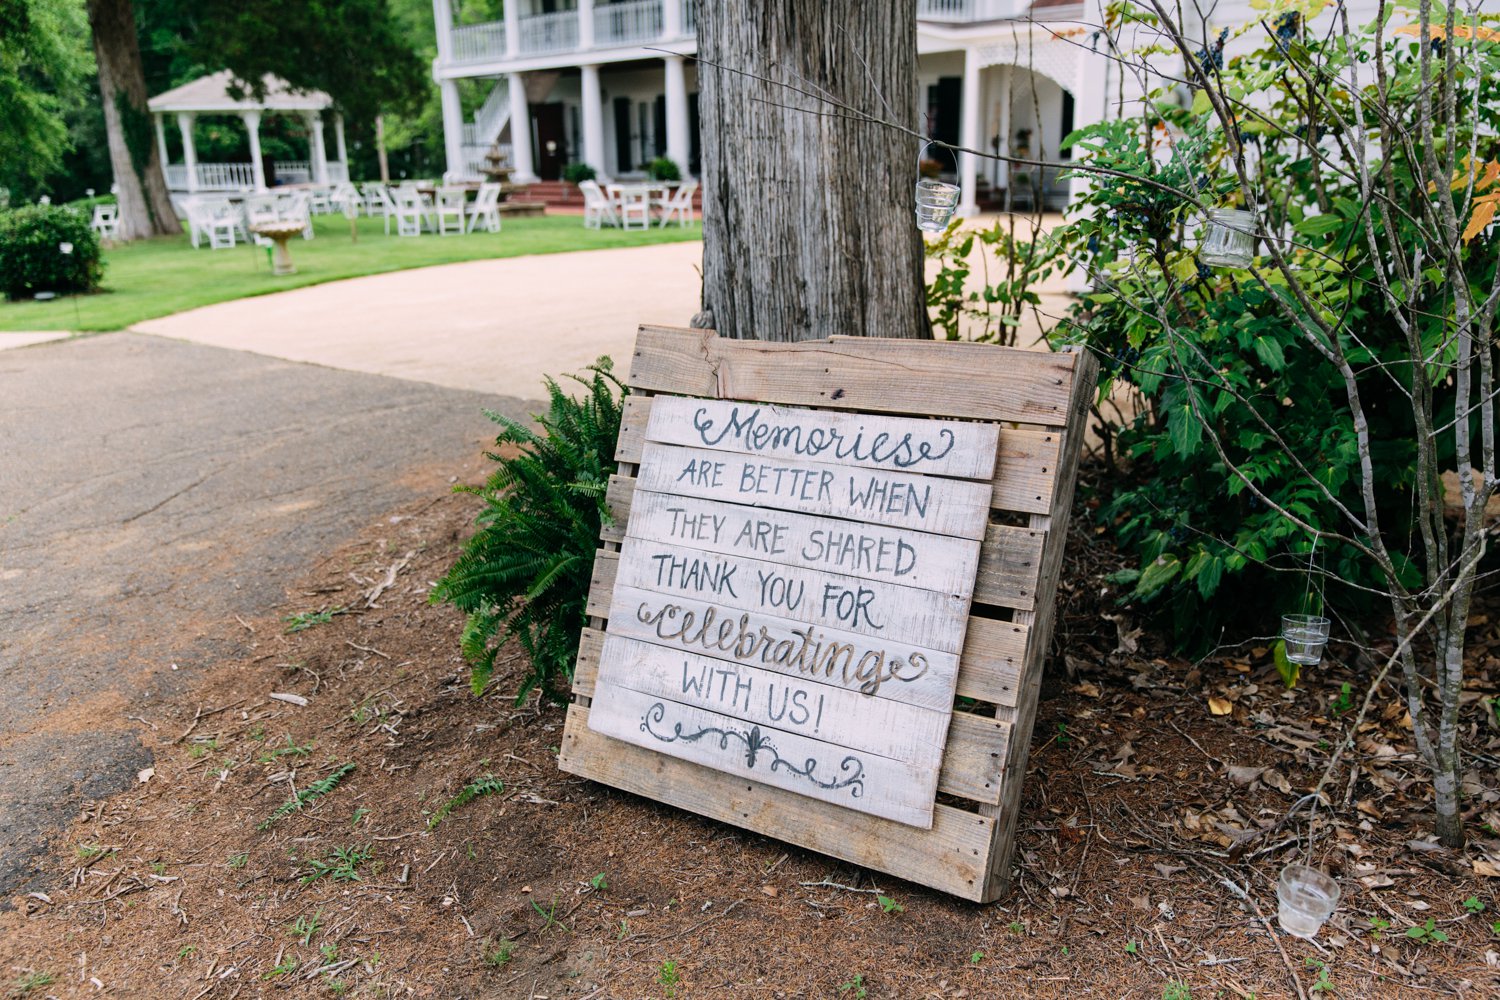 Memories
ARE BETTER WHEN
THEY ARE SHARED.
THANK YOU FOR
celebrating
WITH US!